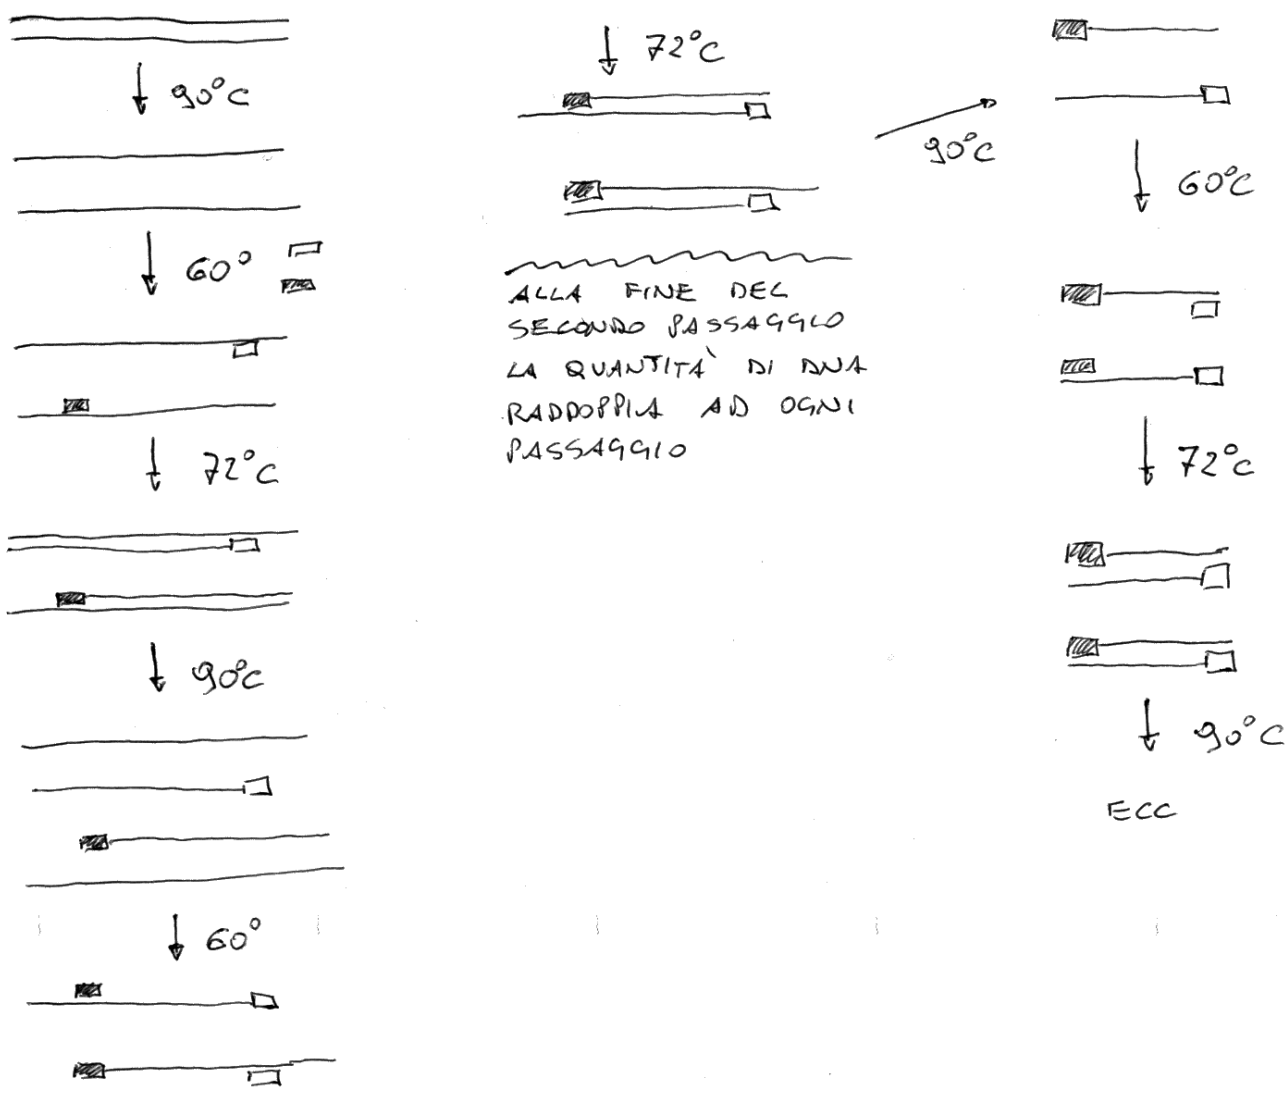 90°C
60°
72°C
90°C
60°
72°C
ALLA FINE DEL
SECONDO PASSAGGIO
LA QUANTITÀ DI DNA
RADDOPPIA AD OGNI
PASSAGGIO
90°C
60°C
72°C
90°C
ECC